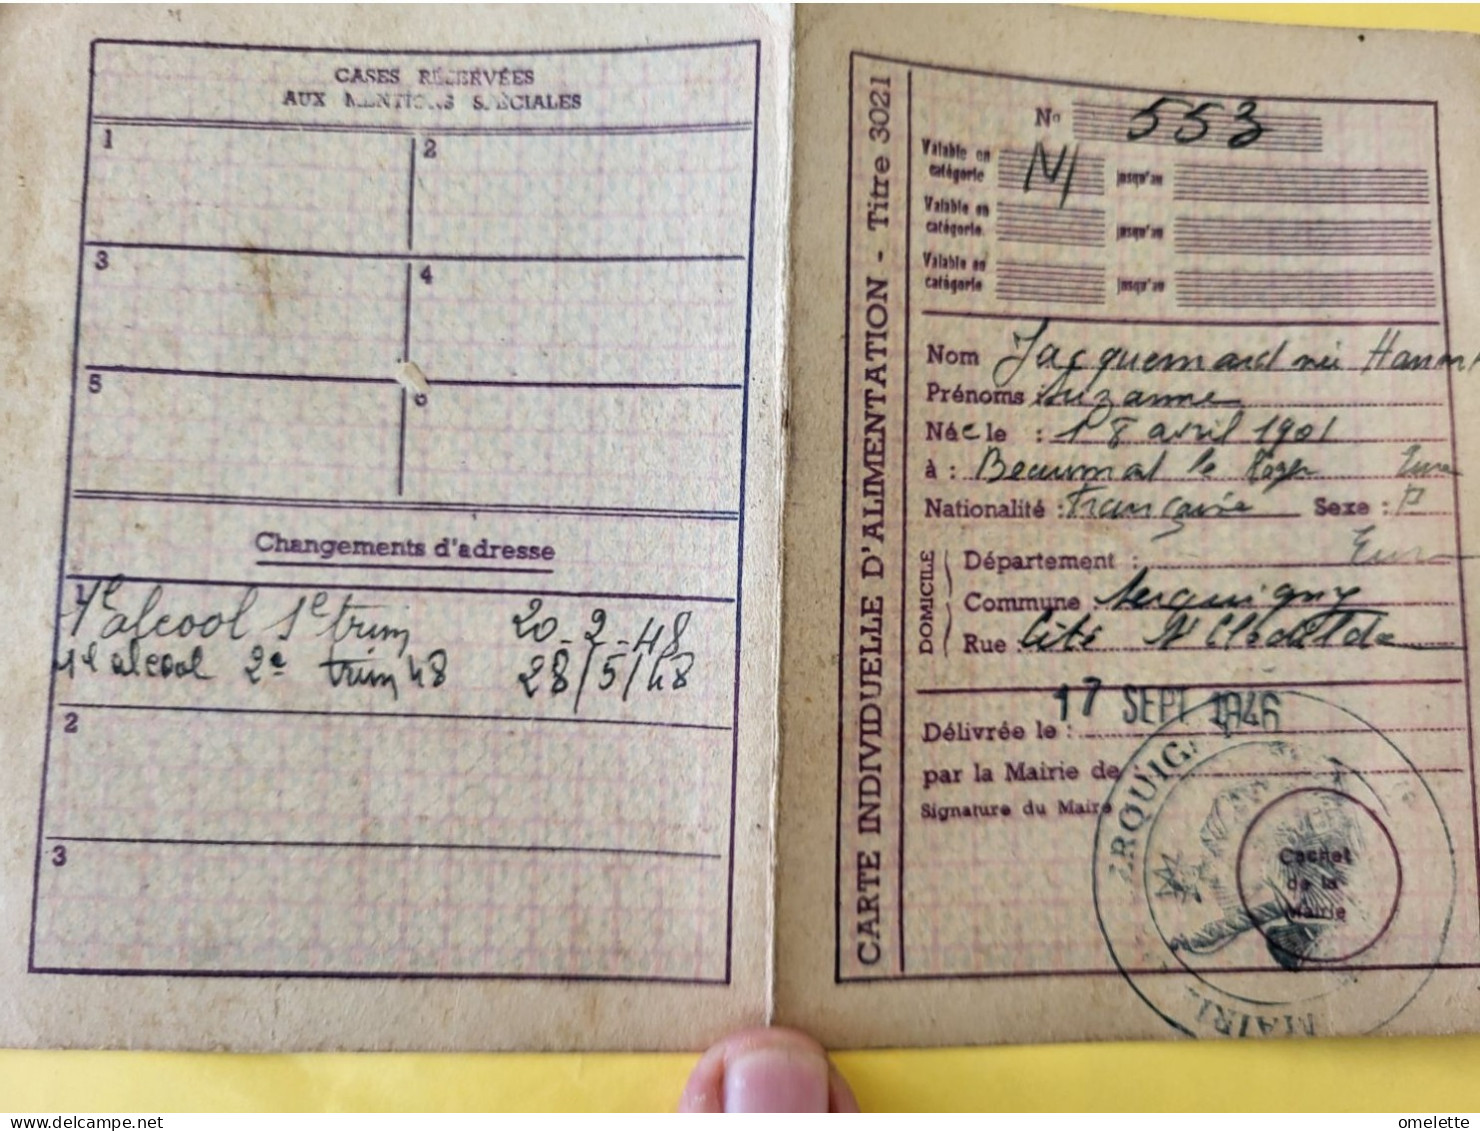 CASES RÉSERVÉES
AUX MENTIONS SPÉCIALES
1
2
3
4
5
6
Changements d'adresse
1
1e alcool 1e trim 20-2-48
1e alcool 2e trim 48 28/5/48
2
3
CARTE INDIVIDUELLE D'ALIMENTATION - Titre 3021
No 553
Valable en catégorie M jusqu'au
Valable en catégorie jusqu'au
Valable en catégorie jusqu'au
Nom Jacquemard née
Prénoms : Suzanne
Née le : 18 avril 1901
à : Beaumont le Roger Eure
Nationalité : Française Sexe : F
DOMICILE
Département : Eure
Commune Serquigny
Rue : Cité St Clotilde
17 SEPT 1946
Délivrée le :
par la Mairie de :
Signature du Maire
Cachet
de la
Mairie
delcampe.net
omelette